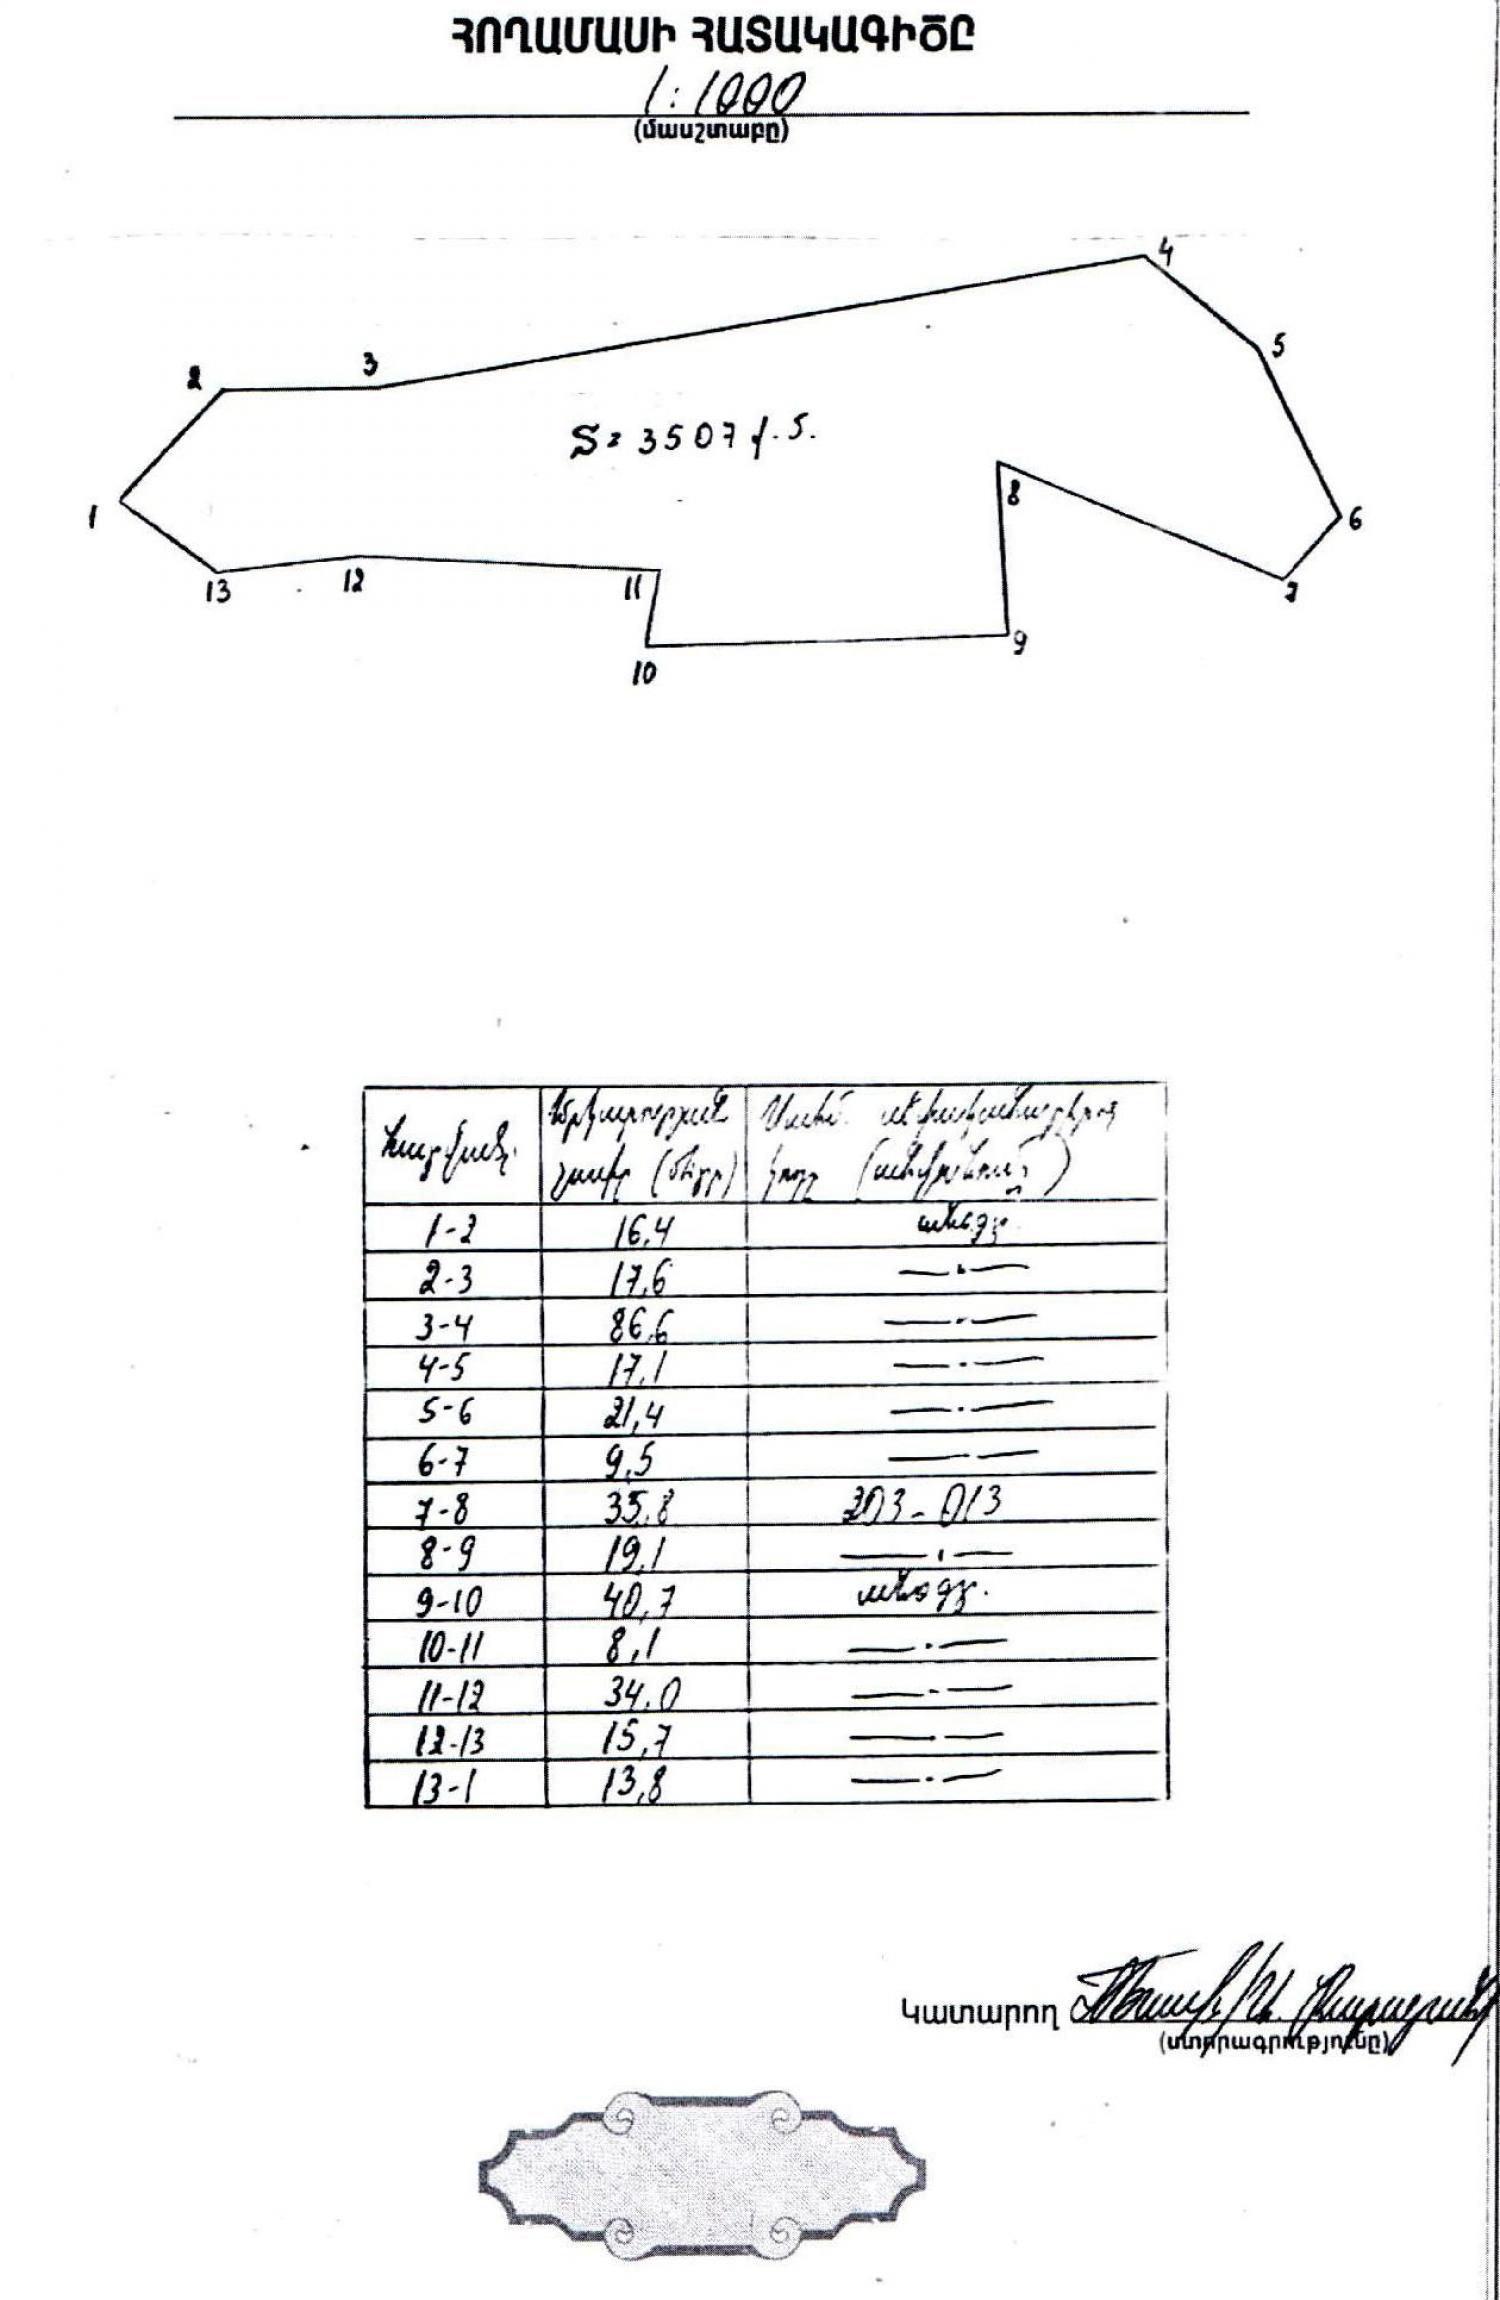 ՀՈՂԱՄԱՍԻ ՀԱՏԱԿԱԳԻԾԸ
1:1000
(մասշտաբը)
4
3
5
2
S=3507 ք.մ.
8
1
6
13
12
11
7
10
9
(մետր)
1-2 16,4 անօգտ.
2-3 17,6 —·—
3-4 86,6 —·—
4-5 17,1 —·—
5-6 21,4 —·—
6-7 9,5 — —
7-8 35,8 303-013
8-9 19,1 —·—
9-10 40,7 անօգտ.
10-11 8,1 —·—
11-12 34,0 —·—
12-13 15,7 —·—
13-1 13,8 —·—
Կատարող
(ստորագրությունը)